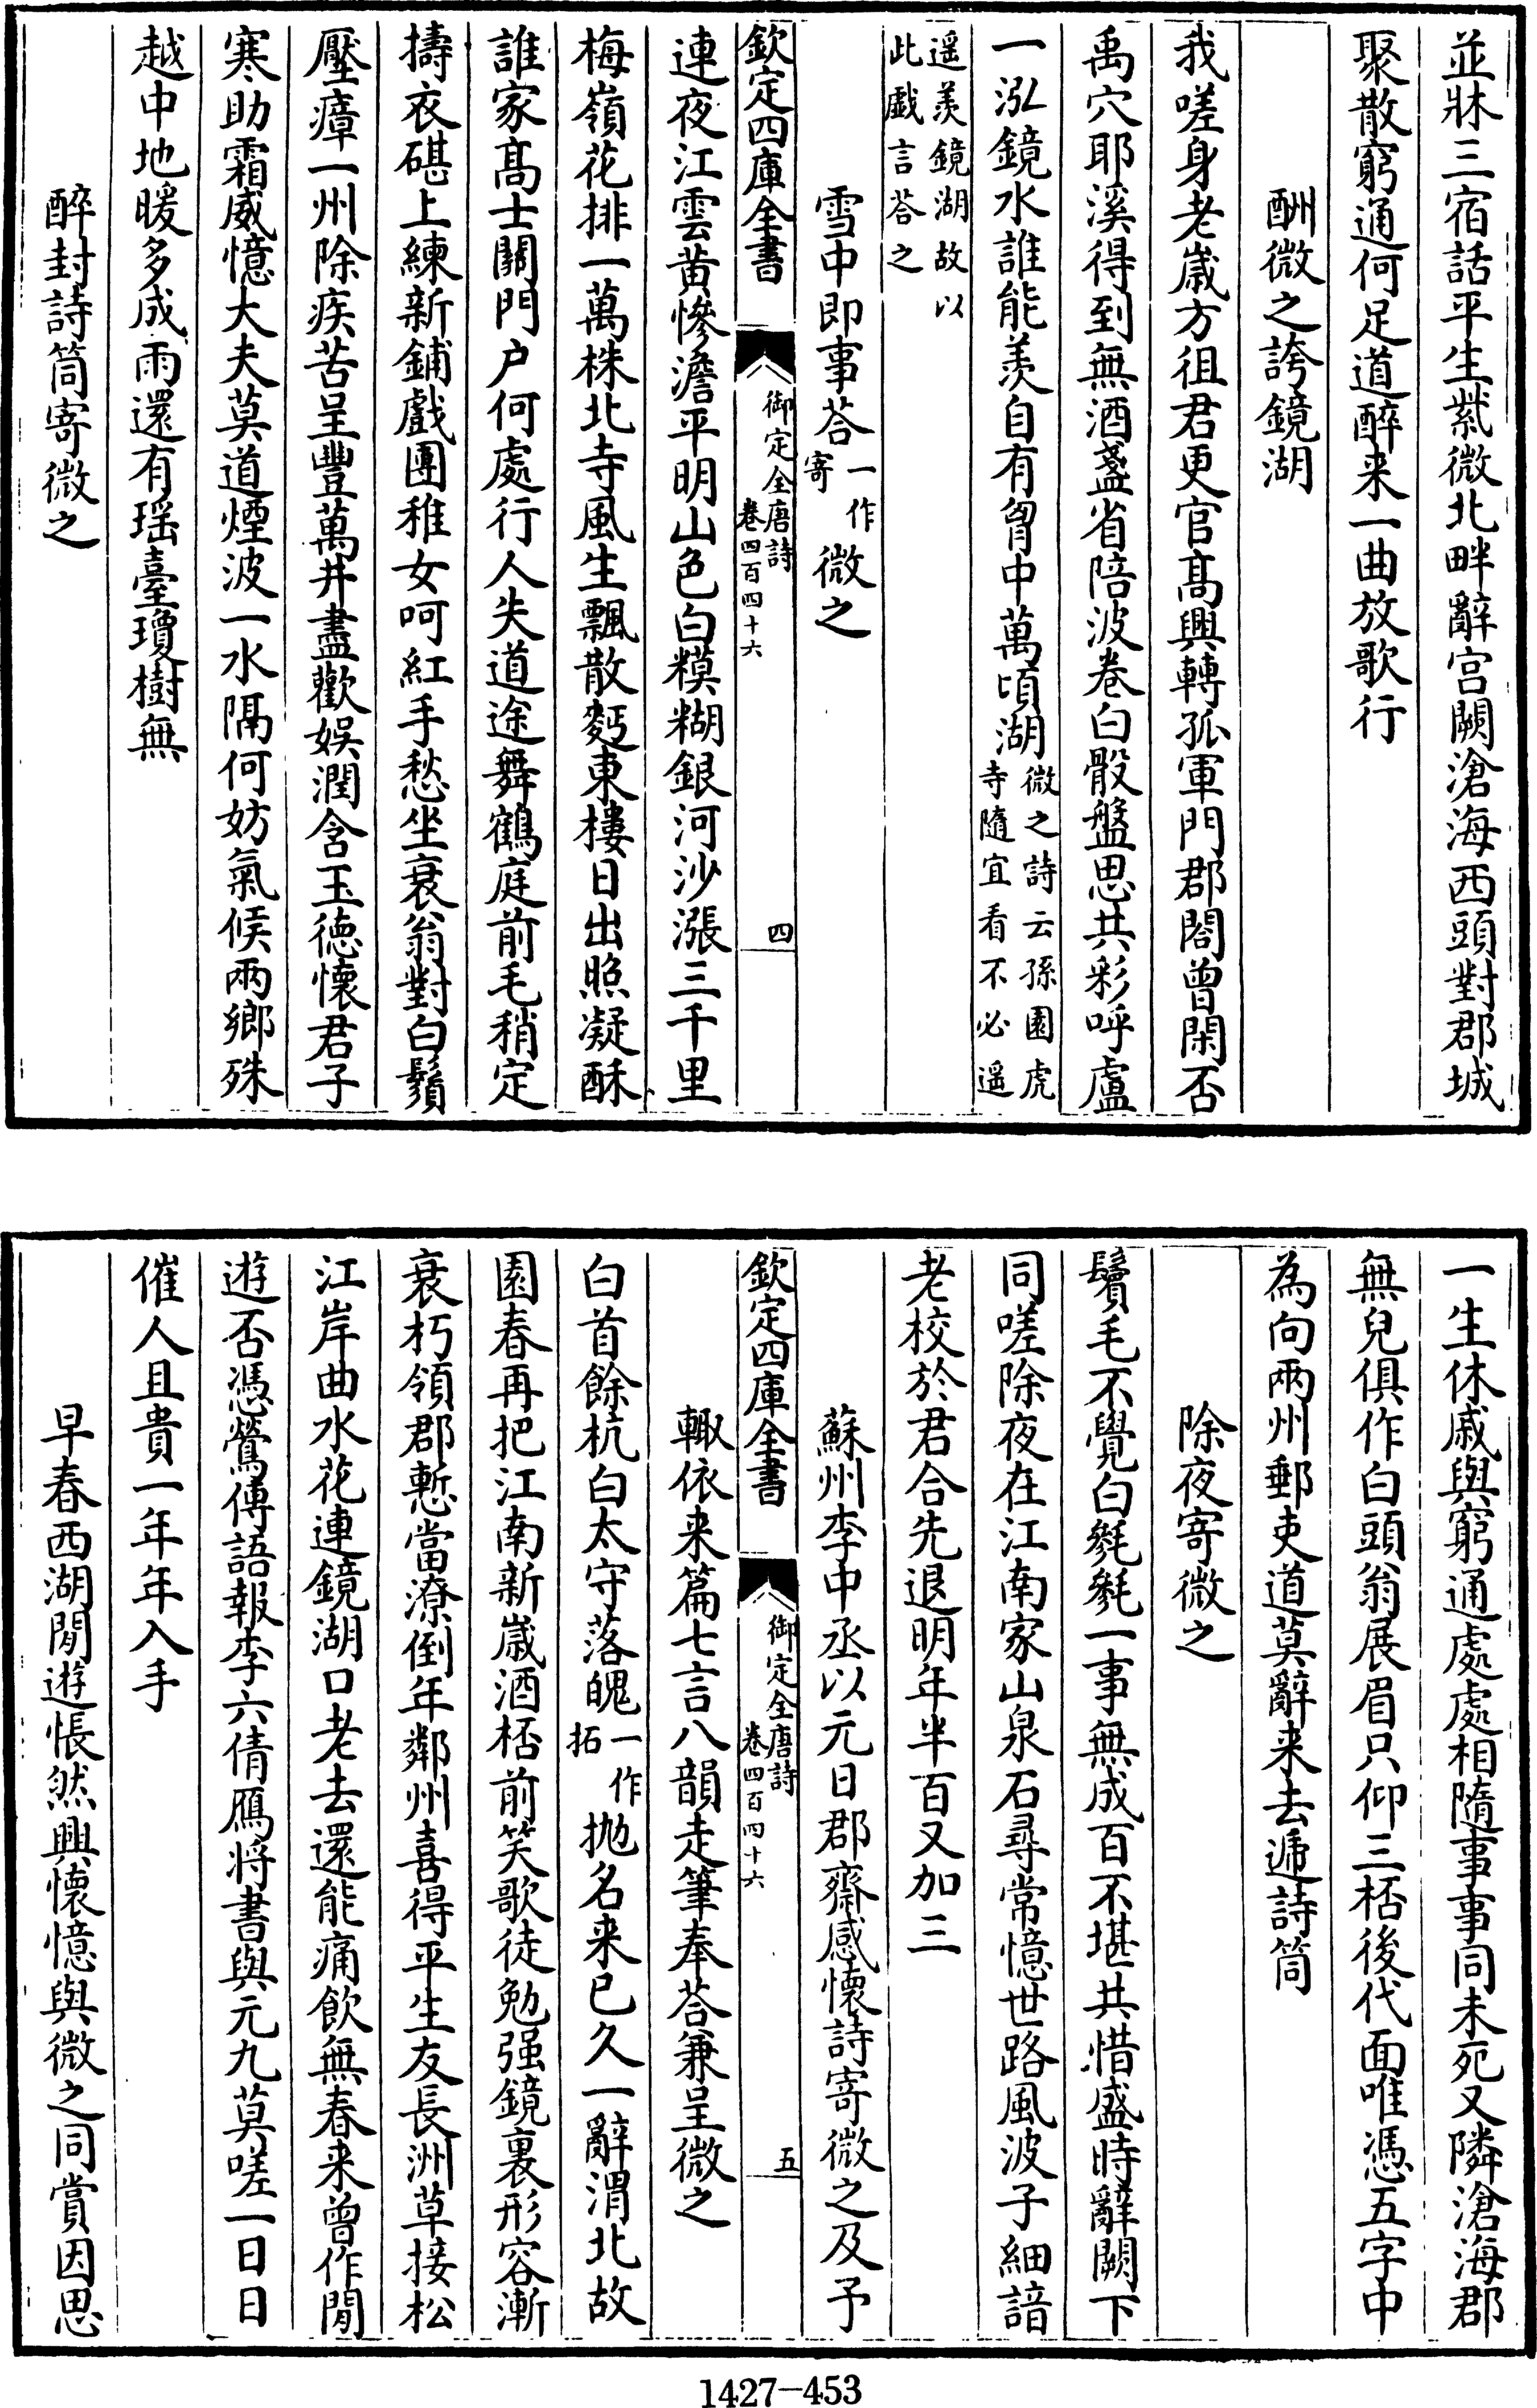 並牀三宿話平生紫微北畔辭宫闕滄海西頭對郡城
聚散窮通何足道醉来一曲放歌行
酬微之誇鏡湖
我嗟身老嵗方徂君更官髙興轉孤軍門郡閤曾閑否
禹穴耶溪得到無酒盞省陪波卷白骰盤思共彩呼盧
一泓鏡水誰能羡自有胷中萬頃湖微之詩云孫園虎
寺隨宜看不必遥
遥羡鏡湖故以
此戯言荅之
雪中即事荅一作
寄微之
欽定四庫全書
御定全唐詩
卷四百四十六
四
連夜江雲黄慘澹平明山色白糢糊銀河沙漲三千里
梅嶺花排一萬株北寺風生飄散麫東樓日出照凝酥
誰家髙士關門户何處行人失道途舞鶴庭前毛稍定
擣衣碪上練新鋪戲團稚女呵紅手愁坐衰翁對白鬚
壓瘴一州除疾苦呈豐萬井盡歡娛潤含玉徳懷君子
寒助霜威憶大夫莫道煙波一水隔何妨氣候兩鄉殊
越中地暖多成雨還有瑶臺瓊樹無
醉封詩筒寄微之
一生休戚與窮通處處相隨事事同未死又隣滄海郡
無兒俱作白頭翁展眉只仰三桮後代面唯憑五字中
為向兩州郵吏道莫辭来去遞詩筒
除夜寄微之
鬢毛不覺白毿毿一事無成百不堪共惜盛時辭闕下
同嗟除夜在江南家山泉石尋常憶世路風波子細諳
老校於君合先退明年半百又加三
蘇州李中丞以元日郡齋感懷詩寄微之及予
欽定四庫全書
御定全唐詩
卷四百四十六
五
輙依来篇七言八韻走筆奉荅兼呈微之
白首餘杭白太守落魄一作
拓抛名来已久一辭渭北故
園春再把江南新嵗酒桮前笑歌徒勉强鏡裏形容漸
衰朽領郡慙當潦倒年鄰州喜得平生友長洲草接松
江岸曲水花連鏡湖口老去還能痛飲無春来曾作閒
遊否憑鶯傳語報李六倩鴈將書與元九莫嗟一日日
催人且貴一年年入手
早春西湖閒遊悵然興懷憶與微之同賞因思
1427-453